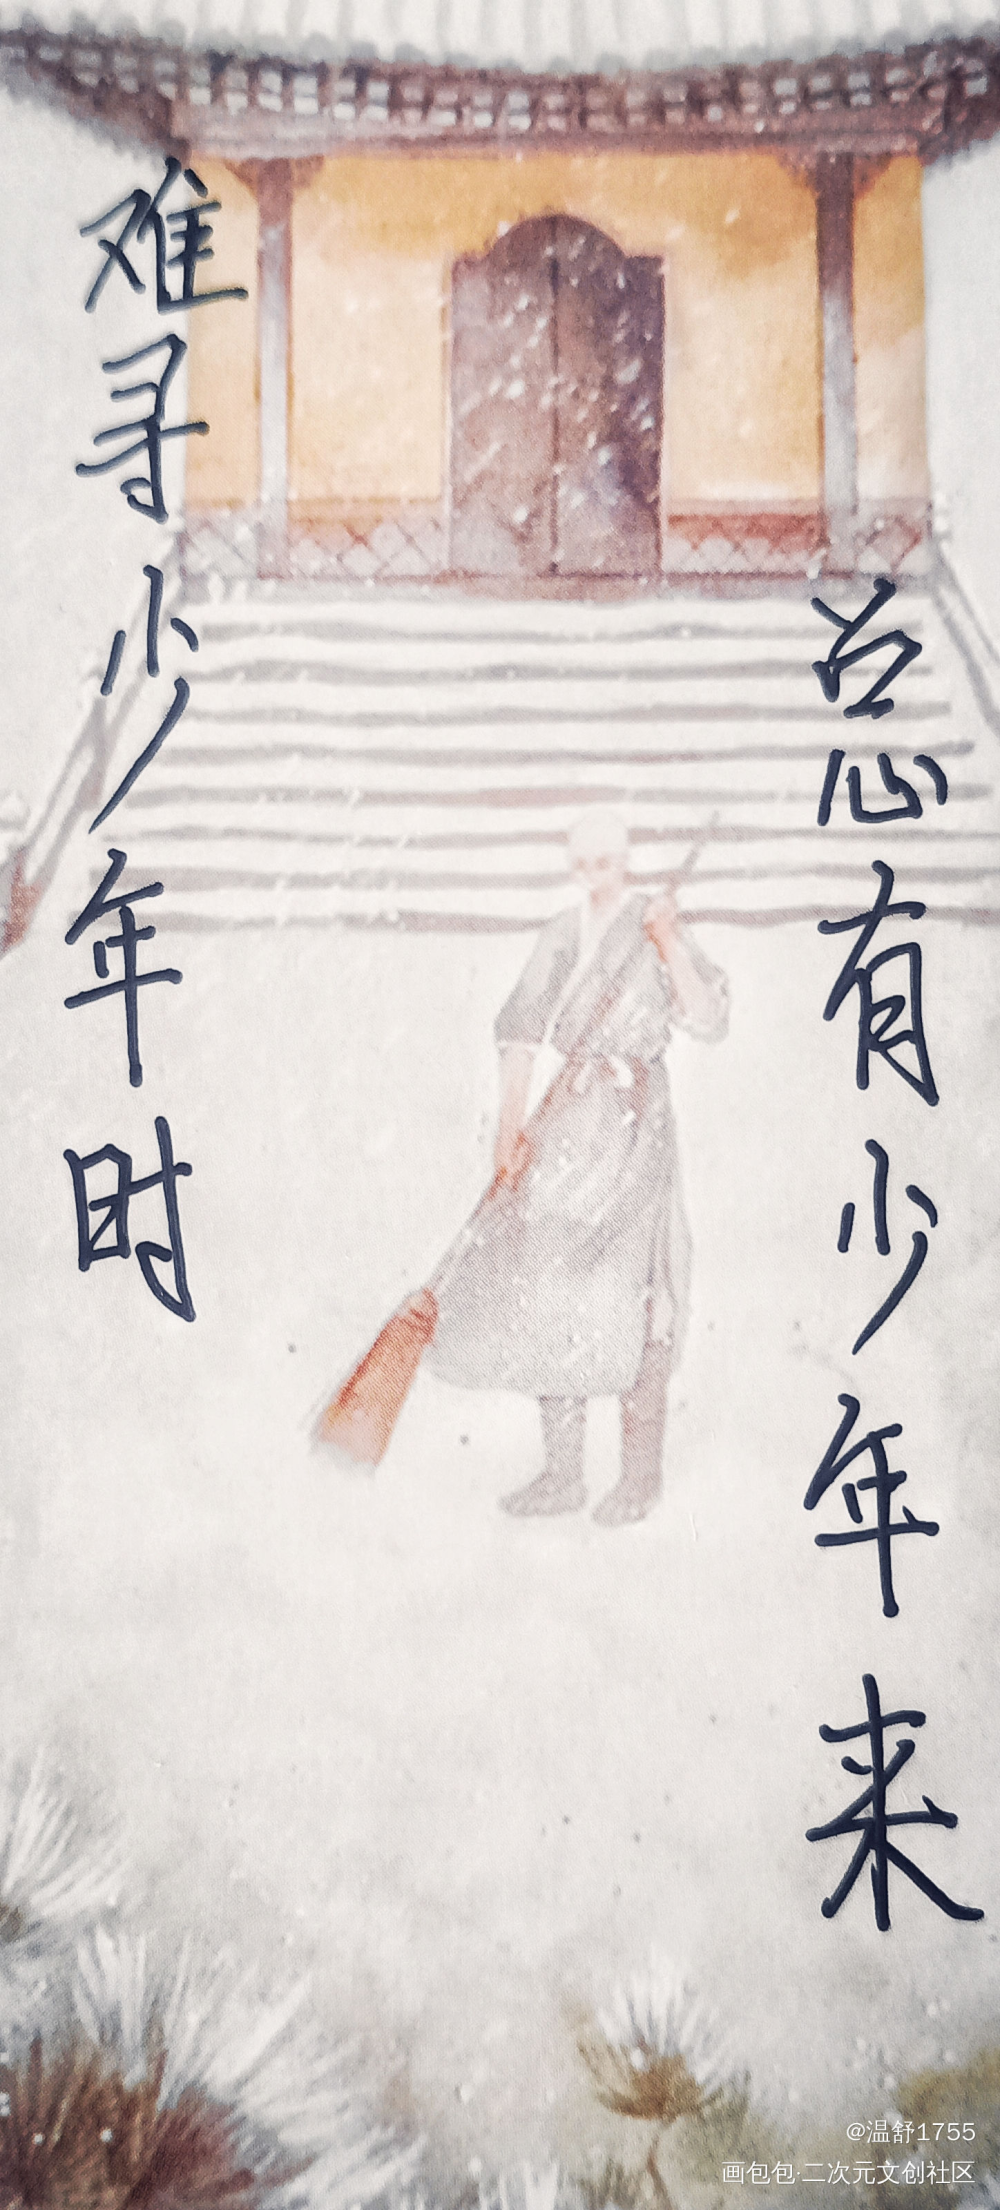 总有少年来
难寻少年时
@温舒1755
画包包·二次元文创社区